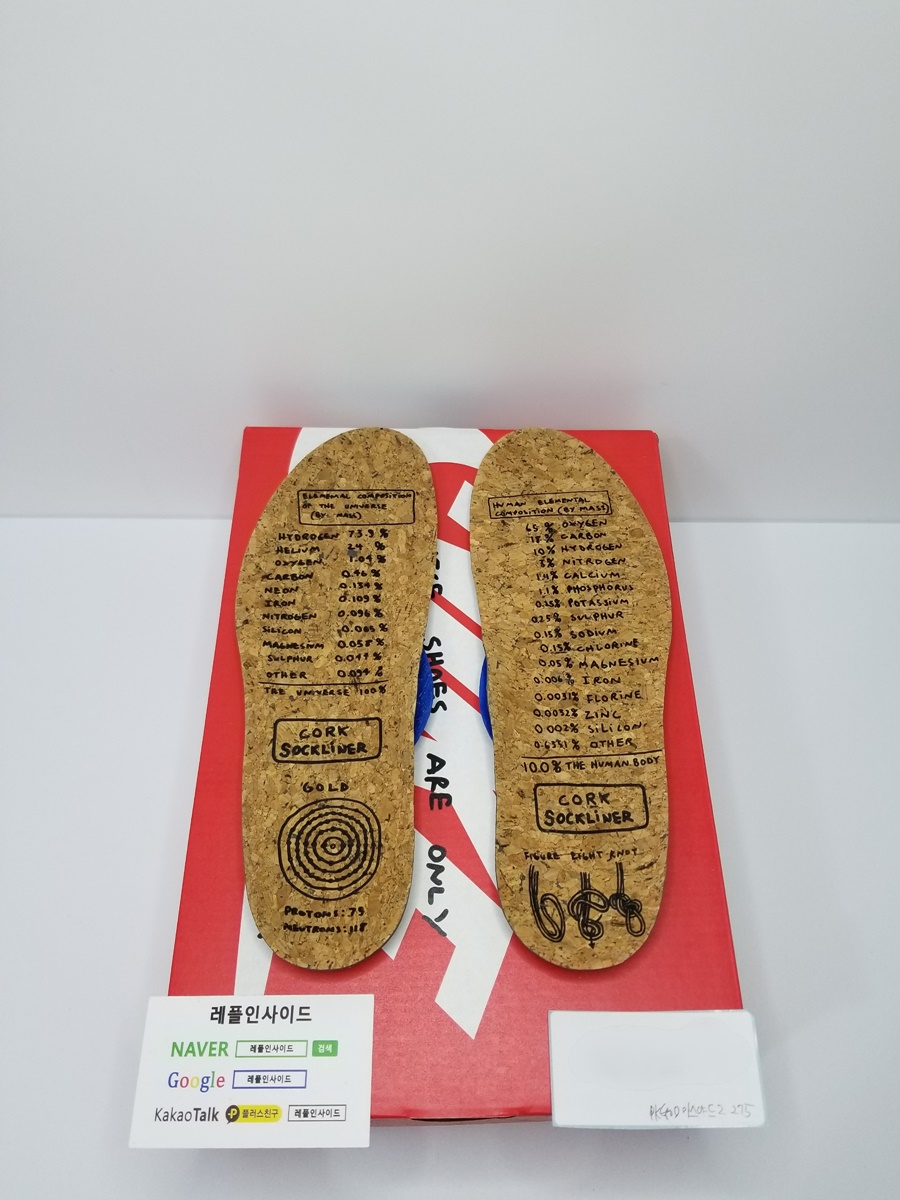 ELEMENAL COMPOSITION
OF THE UNIVERSE
(BY MASS)
HYDROGEN 73.9 %
HELIUM 24 %
OXYGEN 1.04 %
CARBON 0.46 %
NEON 0.134 %
IRON 0.109 %
NITROGEN 0.096 %
SILICON 0.065 %
MAGNESIUM 0.058 %
SULPHUR 0.044 %
OTHER 0.094 %
THE UNIVERSE 100%
CORK
SOCKLINER
GOLD
PROTONS: 79
NEUTRONS: 118
HUMAN ELEMENTAL
COMPOSITION (BY MASS)
65 % OXYGEN
18 % CARBON
10% HYDROGEN
3% NITROGEN
1.4% CALCIUM
1.1% PHOSPHORUS
0.25% POTASSIUM
0.25% SULPHUR
0.15% SODIUM
0.15% CHLORINE
0.05% MAGNESIUM
0.006% IRON
0.0037% FLORINE
0.0032% ZINC
0.002% SILICON
0.6351% OTHER
100% THE HUMAN BODY
CORK
SOCKLINER
FIGURE EIGHT KNOT
SHOES ARE ONLY
레플인사이드
NAVER 레플인사이드 검색
Google 레플인사이드
KakaoTalk P 플러스친구 레플인사이드
275